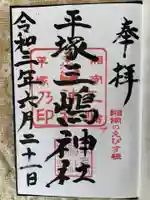 奉拝
湘南のえびす様
平塚三嶋神社
令和三年六月二十一日